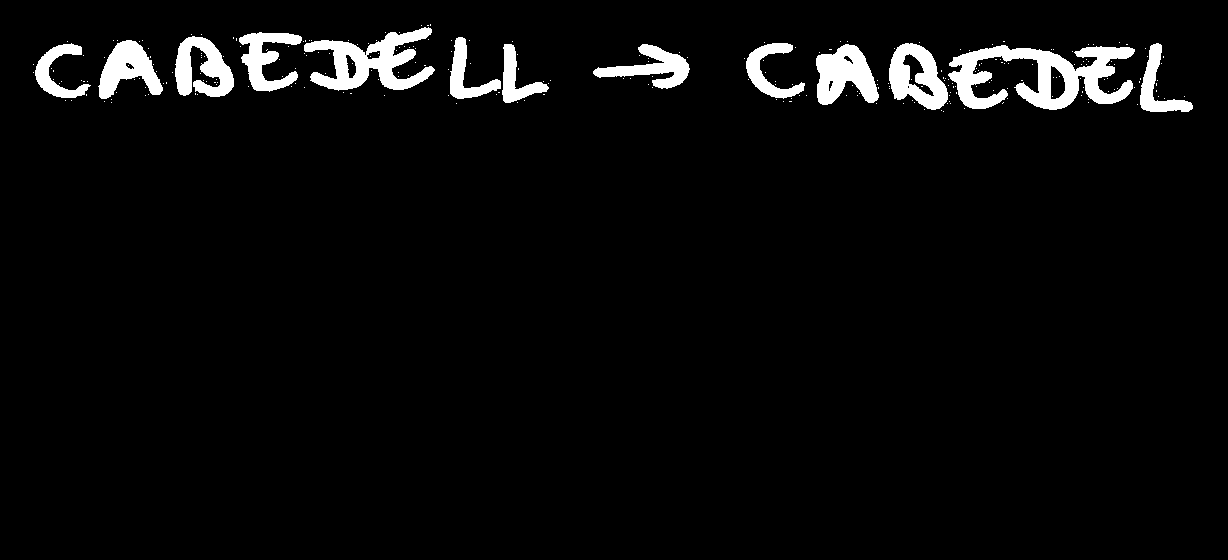 CABEDELL → CABEDEL